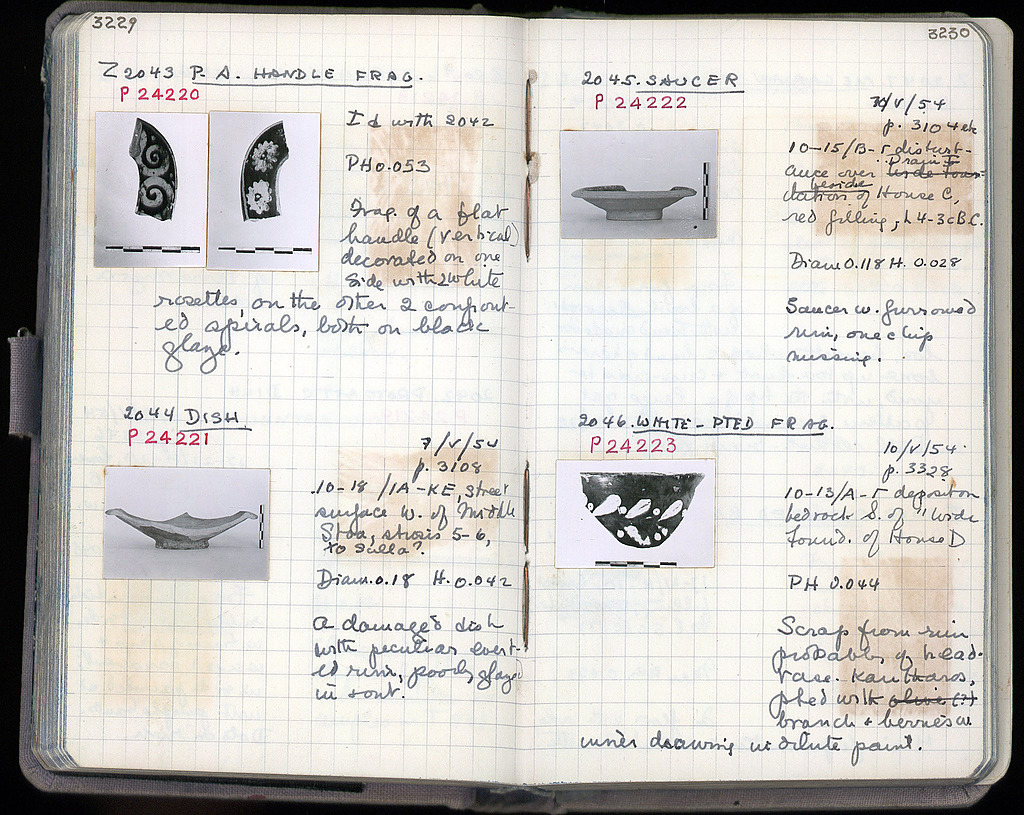 3229
Z 2043 P. A. HANDLE FRAG.
P 24220
Id with 2042
PH 0.053
Frag. of a flat
handle (vertical)
decorated on one
side with 2 white
rosettes, on the other 2 confront-
ed spirals, both on black
glaze.
2044 DISH
P 24221
7/V/54
p. 3108
10-18 /IA-KE, street
surface W. of Middle
Stoa, strosis 5-6,
to Sulla?
Diam. 0.18 H. 0.042
A damaged dish
with peculiar evert-
ed rim, poorly glazed
in + out.
3230
2045. SAUCER
P 24222
/V/54
p. 3104 ek
10-15/B-Γ disturb-
ance over Drain I
beside House C,
red filling, L 4-3c B.C.
Diam 0.118 H. 0.028
Saucer w. furrowed
rim, one chip
missing.
2046. WHITE-PTED FRAG.
P 24223
10/V/54
p. 3328
10-13/A-Γ deposit on
bedrock S. of "wide
found. of House D
PH 0.044
Scrap from rim
probably of head-
vase. Kantharos,
pted with olive (?)
branch + berries w.
inner drawing in dilute paint.